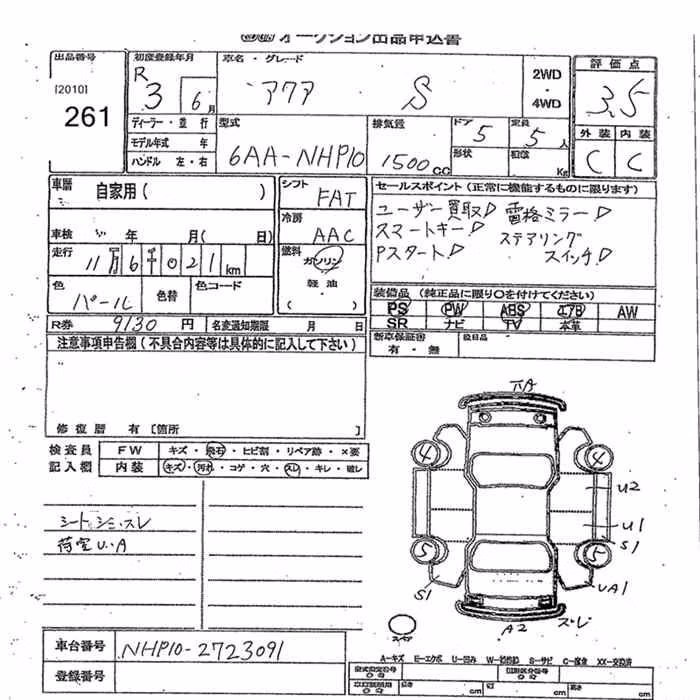 オークション出品申込書
出品番号
[2010]
261
初度登録年月
R 3 6月
車名・グレード
アクア S
2WD
・
4WD
評価点
3.5
外装 内装
C C
ディーラー・並行
モデル年式 年
ハンドル 左・右
型式
6AA-NHP10
排気量
1500cc
ドア 5
定員 5人
形状
積
Kg
車歴
自家用( )
車検 年 月( 日)
走行
11万6千021km
色
パール
色替
色コード
シフト
FAT
冷房
AAC
燃料
ガソリン
・
軽油
セールスポイント(正常に機能するものに限ります)
ユーザー買取!
電格ミラー!
スマートキー!
ステアリング
Pスタート!
スイッチ!
装備品 (純正品に限り○を付けてください)
PS PW ABS エアB AW
SR ナビ TV 本革
新車保証書
有・無
後日品
R券 9130円 名変通知期限 月 日
注意事項申告欄(不具合内容等は具体的に記入して下さい)
修復歴 有 [箇所 ]
検査員
記入欄
FW キズ・飛石・ヒビ割・リペア跡・×要
内装 キズ・汚れ・コゲ・穴・スレ・キレ・破レ
シートシミ・スレ
荷室U・A
車台番号 NHP10-2723091
登録番号
A
4
4
U2
U1
S1
5
5
S1
UA1
A2
スレ
スペア
A-キズ E-エクボ U-凹み S-サビ C-腐食 XX-交換済
型式指定番号
類別区分番号
長さ cm
幅 cm
高さ cm